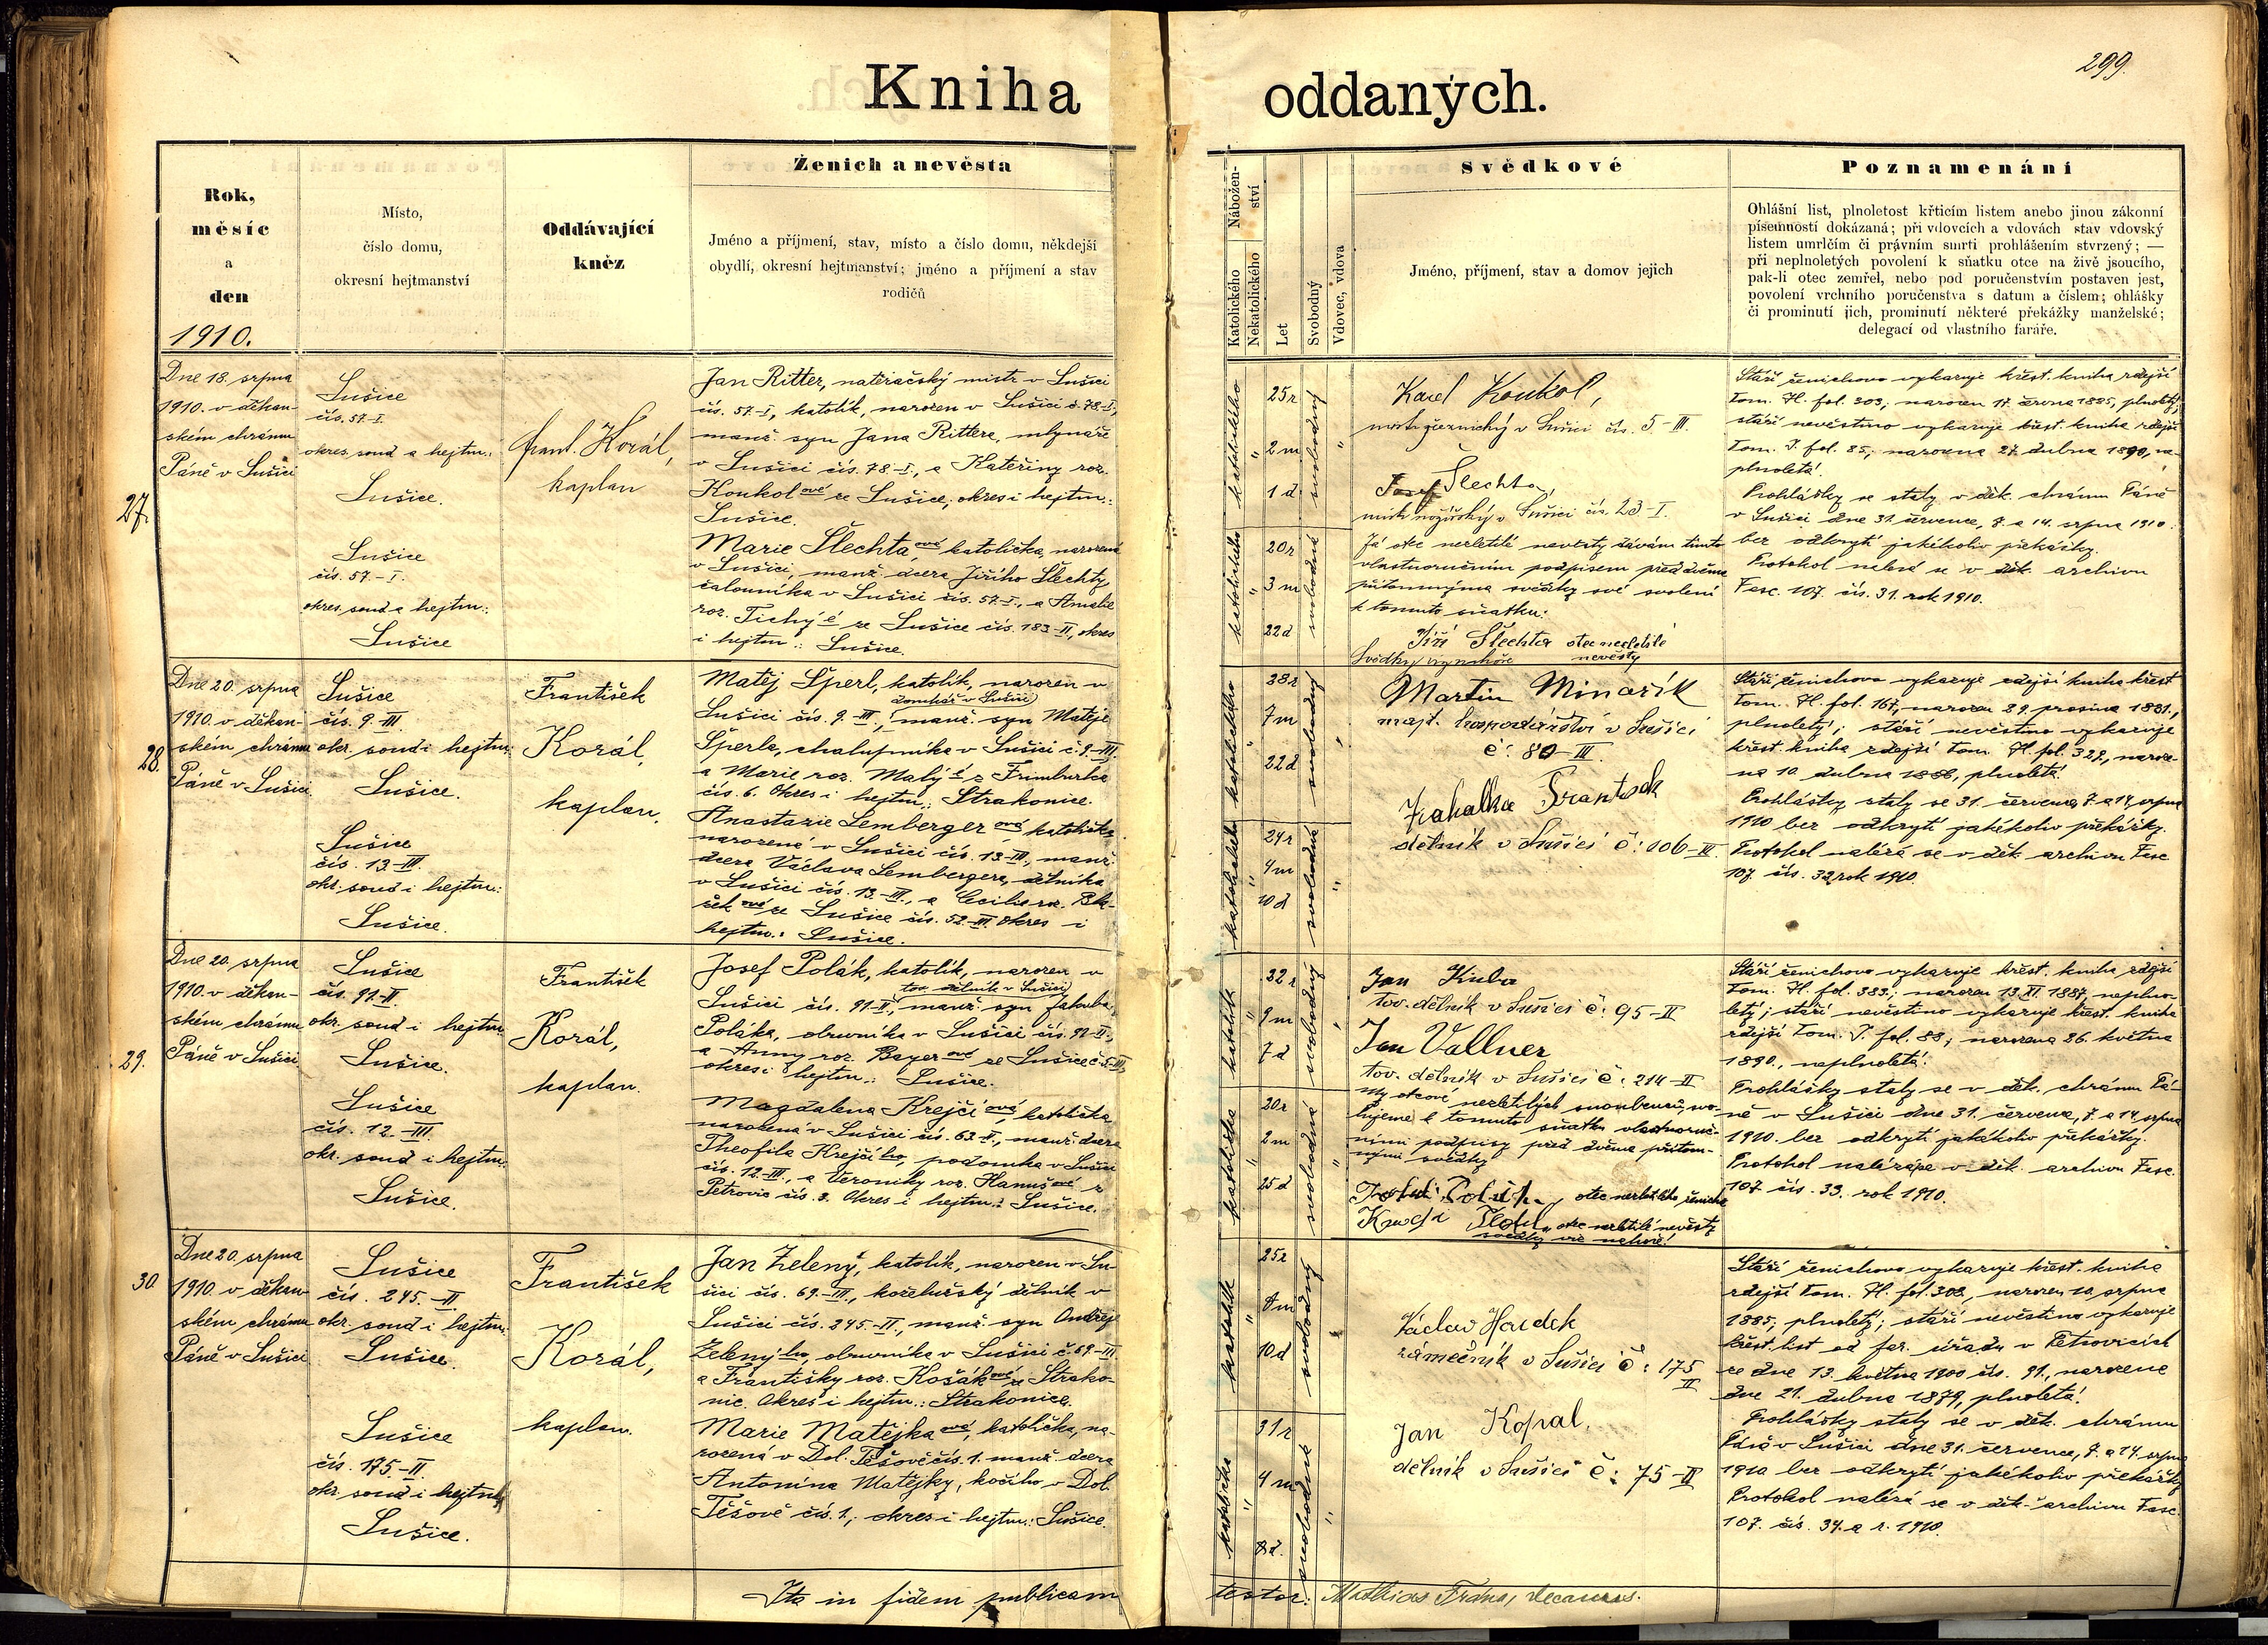 299.
Kniha oddaných.
Rok,
měsíc
a
den
1910.
Místo,
číslo domu,
okresní hejtmanství
Oddávající
kněz
Ženich a nevěsta
Jméno a příjmení, stav, místo a číslo domu, někdejší
obydlí, okresní hejtmanství; jméno a příjmení a stav
rodičů
Nábožen-
ství
Katolického
Nekatolického
Let
Svobodný
Vdovec, vdova
Svědkové
Jméno, příjmení, stav a domov jejich
Poznamenání
Ohlášní list, plnoletost křticím listem anebo jinou zákonní
písemností dokázaná; při vdovcích a vdovách stav vdovský
listem umrlčím či právním smrti prohlášením stvrzený; —
při neplnoletých povolení k sňatku otce na živě jsoucího,
pak-li otec zemřel, nebo pod poručenstvím postaven jest,
povolení vrchního poručenstva s datum a číslem; ohlášky
či prominutí jich, prominutí některé překážky manželské;
delegací od vlastního faráře.
27.
Dne 18. srpna
1910. v děkan-
ském chrámu
Páně v Sušici
Sušice
čís. 57.-I.
okres. soud a hejtm.:
Sušice.
Sušice
čís. 57.-I.
okres. soud a hejtm.:
Sušice
Frant. Korál,
kaplan
Jan Ritter, natěračský mistr v Sušici
čís. 57-I, katolík, narozen v Sušici č. 78-I,
manž. syn Jana Rittera, mlynáře
v Sušici čís. 78.-I., a Kateřiny roz.
Koukolové ze Sušice, okres i hejtm.:
Sušice.
Marie Šlechtaová katolička, narozená
v Sušici, manž. dcera Jiřího Šlechty
čalouníka v Sušici čís. 57.-I., a Amalie
roz. Tichýé ze Sušice čís. 183-II, okres
i hejtm.: Sušice.
katolického
25 r
2 m
1 d
svobodný
katolického
20 r
3 m
22 d
svobodná
Karel Koukol,
v Sušici čís. 5-III.
Josef Šlechta,
mistr nožířský v Sušici čís. 23-I.
Já otec nezletilé nevěsty dávám tímto
vlastnoručním podpisem před dvěma
přítomnýma svědky své svolení
k tomuto sňatku:
Jiří Šlechta otec nezletilé
nevěsty
Svědky
Stáří ženichovo vykazuje křest. kniha zdejší
tom. H. fol. 303, narozen 17. června 1885, plnoletý;
stáří nevěstino vykazuje křest. kniha zdejší
tom. I. fol. 85, narozena 27. dubna 1890, ne-
plnoletá.
Prohlášky se staly v děk. chrámu Páně
v Sušici dne 31. července, 7. a 14. srpna 1910.
bez odkrytí jakékoliv překážky.
Protokol nalézá se v děk. archivu
Fasc. 107. čís. 31. rok 1910.
28.
Dne 20. srpna
1910. v děkan-
ském chrámu
Páně v Sušici
Sušice
čís. 9.-III.
okr. soud i hejtm.:
Sušice.
Sušice
čís. 13-III.
okr. soud i hejtm.:
Sušice.
František
Korál,
kaplan.
Matěj Šperl, katolík, narozen v
domkář v Sušici
Sušici čís. 9.-III., manž. syn Matěje
Šperla, chalupníka v Sušici č. 9-III.
a Marie roz. Malýé z Frimburka
čís. 6. Okres i hejtm.: Strakonice.
Anastazie Lembergerová katolička
narozená v Sušici čís. 13-III., manž.
dcera Václava Lembergera, dělníka
v Sušici čís. 13.-III., a Cecilie roz.
ze Sušice čís. 52-III. Okres i
hejtm.: Sušice.
katolického
28 r
7 m
22 d
svobodný
katolického
24 r
4 m
10 d
svobodná
Martin Minařík
majt. hospodářství v Sušici
č: 80-III.
František
dělník v Sušici č: 106-III.
Stáří ženichovo vykazuje zdejší kniha křest.
tom. H. fol. 167, narozen 29. prosince 1881.,
plnoletý; stáří nevěstino vykazuje
křest. kniha zdejší tom. H. fol. 327, naroze-
na 10. dubna 1886, plnoletá.
Prohlášky staly se 31. července, 7. a 14. srpna
1910 bez odkrytí jakékoliv překážky.
Protokol nalézá se v děk. archivu Fasc.
107. čís. 32, rok 1910.
29.
Dne 20. srpna
1910. v děkan-
ském chrámu
Páně v Sušici
Sušice
čís. 91-II.
okr. soud i hejtm.
Sušice.
Sušice
čís. 12-III.
okr. soud i hejtm.
Sušice.
František
Korál,
kaplan.
Josef Polák, katolík, narozen v
tov. dělník v Sušici
Sušici čís. 91-II., manž. syn Jakuba
Poláka, obuvníka v Sušici čís. 91-II.,
a Anny roz. Bayerové ze Sušice č. 5-III,
okres i hejtm.: Sušice.
Magdalena Krejčíová, katolička
narozená v Sušici čís. 63-II., manž. dcera
Theofila Krejčího, podomka v Sušici
čís. 12-III., a Veroniky roz. Hanušové z
Petrovic čís. 3. Okres i hejtm.: Sušice.
katolík
22 r
9 m
7 d
svobodný
katolička
20 r
2 m
25 d
svobodná
Jan Kuba
tov. dělník v Sušici č: 95-II
Jan Vallner
tov. dělník v Sušici č: 214-II
My otcové nezletilých snoubenců, svo-
lujeme k tomuto sňatku vlastnoruč-
ními podpisy před dvěma přítom-
nými svědky
Polák, otec nezletilého ženicha
Krejčí otec nezletilé nevěsty
svědky viz nahoře!
Stáří ženichovo vykazuje křest. kniha zdejší
tom. H. fol. 383., narozen 13. XI. 1887, neplno-
letý; stáří nevěstino vykazuje křest. kniha
zdejší tom. I. fol. 88, narozena 26. května
1890., neplnoletá.
Prohlášky staly se v děk. chrámu Pá-
ně v Sušici dne 31. července, 7. a 14. srpna
1910. bez odkrytí jakékoliv překážky.
Protokol nalézá se v děk. archivu Fasc.
107. čís. 33. rok 1910.
30.
Dne 20. srpna
1910. v děkan-
ském chrámu
Páně v Sušici
Sušice
čís. 245.-II.
okr. soud i hejtm.
Sušice.
Sušice
čís. 175-II.
okr. soud i hejtm.
Sušice.
František
Korál,
kaplan.
Jan Zelený, katolík, narozen v Su-
šici čís. 69.-III., koželužský dělník v
Sušici čís. 245.-II., manž. syn Ondřeje
Zelenýho, obuvníka v Sušici č. 69-III
a Františky roz. Košákové ze Strako-
nic. Okres i hejtm.: Strakonice.
Marie Matějkaová, katolička, na-
rozená v Dol. Těšově čís. 1. manž. dcera
Antonína Matějky, kočího v Dol.
Těšově čís. 1, okres i hejtm.: Sušice.
katolík
25 r
10 d
svobodný
katolička
31 r
4 m
svobodná
Václav Houdek
zámečník v Sušici č: 175
II
Jan Kopal,
dělník v Sušici č: 75-II
Stáří ženichovo vykazuje křest. kniha
zdejší tom. H. fol. 308, narozen 10. srpna
1885, plnoletý; stáří nevěstino vykazuje
křest. list od far. úřadu v Petrovicích
ze dne 13. května 1900 čís. 91., narozena
dne 21. dubna 1879, plnoletá.
Prohlášky staly se v děk. chrámu
Páně v Sušici dne 31. července, 7. a 14. srpna
1910 bez odkrytí jakékoliv překážky
Protokol nalézá se v děk. archivu Fasc.
107. čís. 34. a r. 1910.
Ita in fidem publicam
testor: Mathias Frána, decanus.